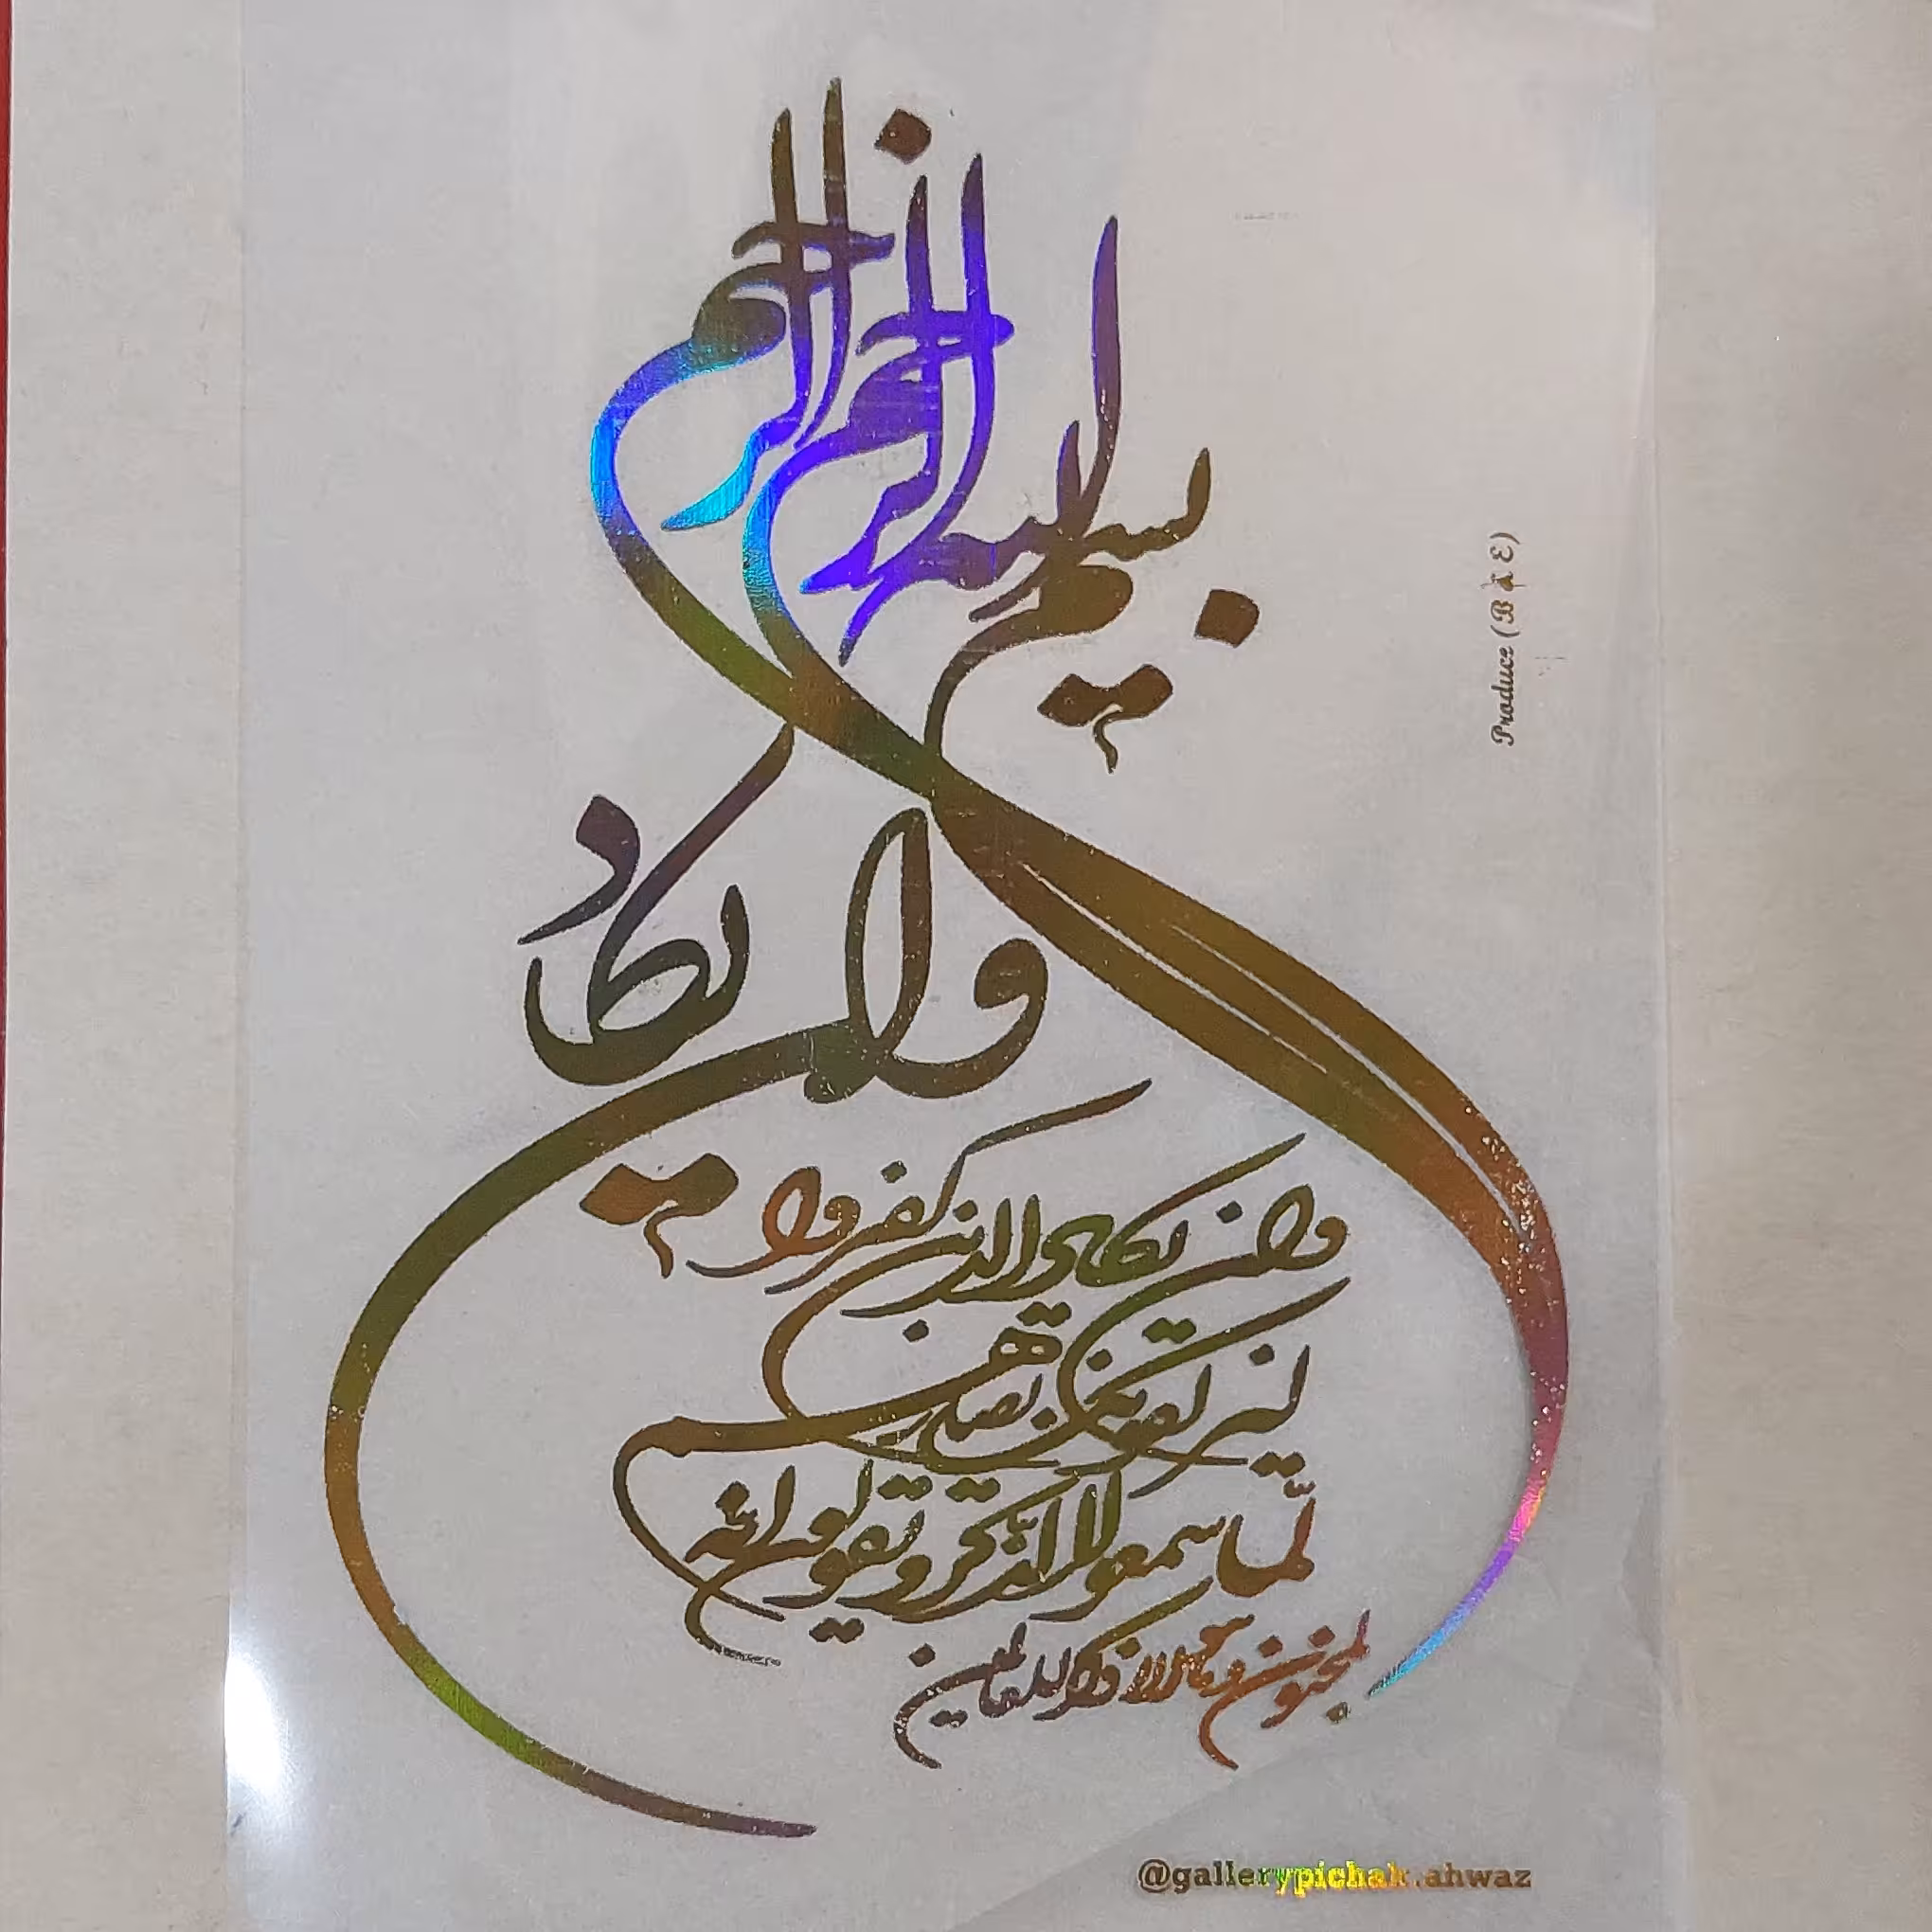 بسم الله الرحمن الرحیم
وان یکاد
وان یکاد الذین کفروا
لیزلقونک بابصارهم
لمّا سمعوا الذکر و یقولون انه
لمجنون و ما هو الا ذکر للعالمین
Produce (B & E)
@gallerypichak.ahwaz